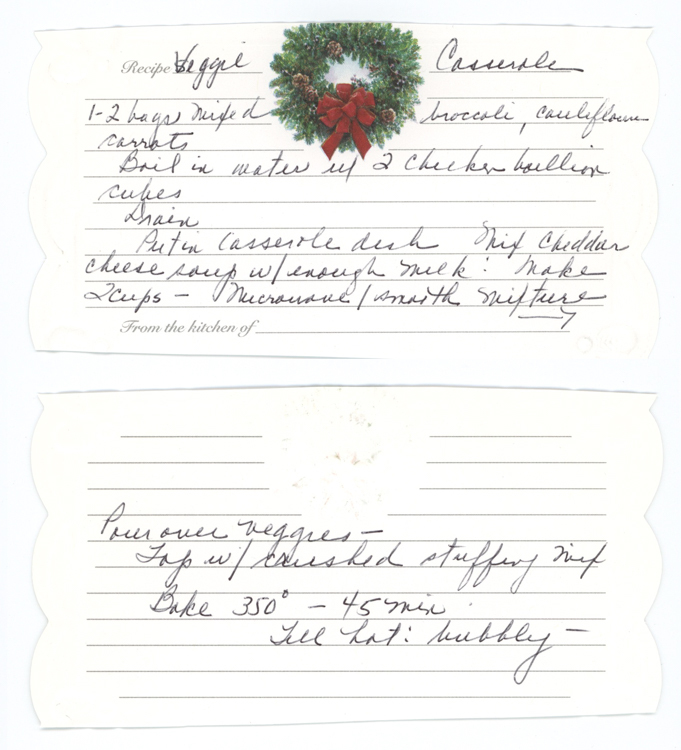 Recipe Veggie Casserole
1-2 bags mixed broccoli, cauliflower
carrots
Boil in water w/ 2 chicken boullion
cubes
Drain
Put in Casserole dish Mix Cheddar
cheese soup w/ enough milk : Make
2 cups - Microwave / smooth mixture
From the kitchen of
Pour over veggies -
Top w/ crushed stuffing mix
Bake 350° - 45 min
Till hot : bubbly -